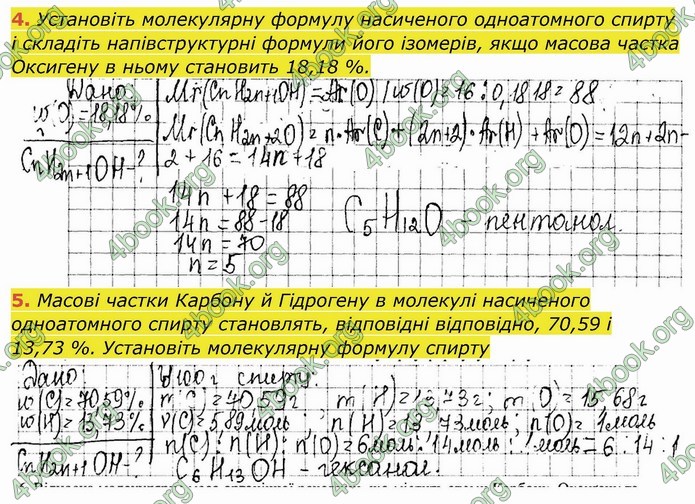 4. Установіть молекулярну формулу насиченого одноатомного спирту
і складіть напівструктурні формули його ізомерів, якщо масова частка
Оксигену в ньому становить 18,18 %.
Дано:
w(O)=18,18%
CnH2n+1OH-?
Mr(CnH2n+1OH)=Ar(O)/w(O)=16:0,1818=88
Mr(CnH2n+2O)=n·Ar(C)+(2n+2)·Ar(H)+Ar(O)=12n+2n+
2+16=14n+18
14n+18=88
14n=88-18
14n=70
n=5
C5H12O - пентанол.
5. Масові частки Карбону й Гідрогену в молекулі насиченого
одноатомного спирту становлять, відповідні відповідно, 70,59 і
13,73 %. Установіть молекулярну формулу спирту
Дано:
w(C)=70,59%
w(H)=13,73%
CnH2n+1OH-?
У 100 г спирту:
m(H)=13,73г; m(O)=15,68г
n(O)=1моль
n(C):n(H):n(O)=6моль:14моль:1моль=6:14:1
C6H13OH - гексанол.
4book.org